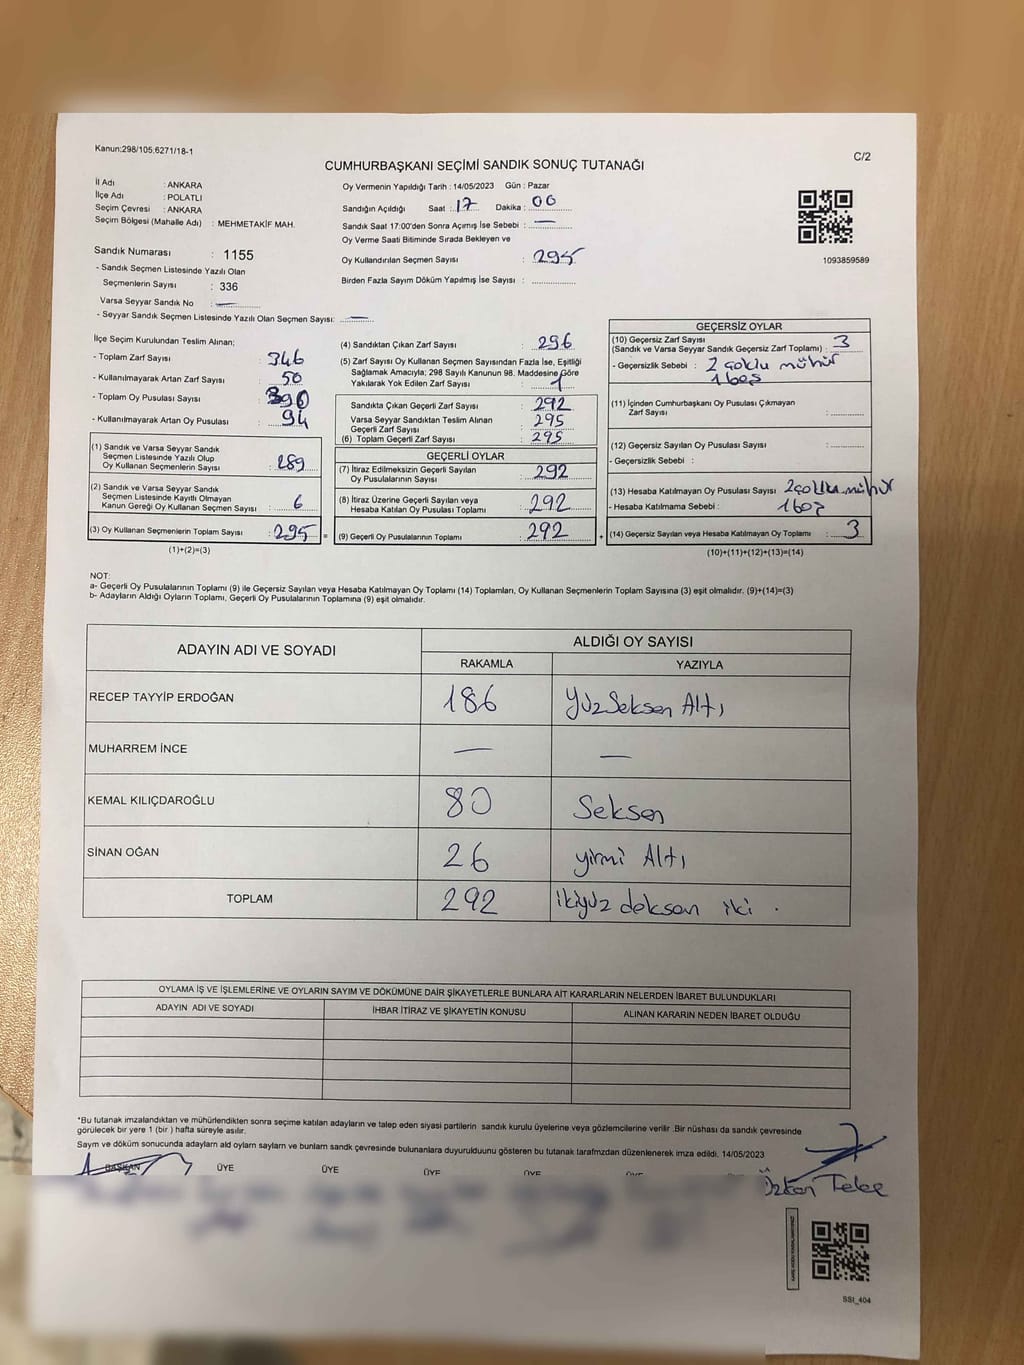 Kanun:298/105;6271/18-1
C/2
CUMHURBAŞKANI SEÇİMİ SANDIK SONUÇ TUTANAĞI
İl Adı : ANKARA
İlçe Adı : POLATLI
Seçim Çevresi : ANKARA
Seçim Bölgesi (Mahalle Adı) : MEHMETAKİF MAH.
Sandık Numarası : 1155
- Sandık Seçmen Listesinde Yazılı Olan
Seçmenlerin Sayısı : 336
Varsa Seyyar Sandık No : —
- Seyyar Sandık Seçmen Listesinde Yazılı Olan Seçmen Sayısı: —
Oy Vermenin Yapıldığı Tarih : 14/05/2023 Gün : Pazar
Sandığın Açıldığı Saat : 17 Dakika : 00
Sandık Saat 17:00'den Sonra Açımış İse Sebebi : —
Oy Verme Saati Bitiminde Sırada Bekleyen ve
Oy Kullandırılan Seçmen Sayısı : 295
Birden Fazla Sayım Döküm Yapılmış İse Sayısı :
1093859589
İlçe Seçim Kurulundan Teslim Alınan;
- Toplam Zarf Sayısı : 346
- Kullanılmayarak Artan Zarf Sayısı : 50
- Toplam Oy Pusulası Sayısı : 390
- Kullanılmayarak Artan Oy Pusulası : 94
(1) Sandık ve Varsa Seyyar Sandık
Seçmen Listesinde Yazılı Olup
Oy Kullanan Seçmenlerin Sayısı : 289
(2) Sandık ve Varsa Seyyar Sandık
Seçmen Listesinde Kayıtlı Olmayan
Kanun Gereği Oy Kullanan Seçmen Sayısı : 6
(3) Oy Kullanan Seçmenlerin Toplam Sayısı : 295 =
(1)+(2)=(3)
(4) Sandıktan Çıkan Zarf Sayısı : 296
(5) Zarf Sayısı Oy Kullanan Seçmen Sayısından Fazla İse, Eşitliği
Sağlamak Amacıyla; 298 Sayılı Kanunun 98. Maddesine Göre
Yakılarak Yok Edilen Zarf Sayısı : 1
Sandıkta Çıkan Geçerli Zarf Sayısı : 292
Varsa Seyyar Sandıktan Teslim Alınan
Geçerli Zarf Sayısı : 295
(6) Toplam Geçerli Zarf Sayısı : 295
GEÇERLİ OYLAR
(7) İtiraz Edilmeksizin Geçerli Sayılan
Oy Pusulalarının Sayısı : 292
(8) İtiraz Üzerine Geçerli Sayılan veya
Hesaba Katılan Oy Pusulası Toplamı : 292
(9) Geçerli Oy Pusulalarının Toplamı : 292 +
GEÇERSİZ OYLAR
(10) Geçersiz Zarf Sayısı
(Sandık ve Varsa Seyyar Sandık Geçersiz Zarf Toplamı) : 3
- Geçersizlik Sebebi : 2 çoklu mühür
1 boş
(11) İçinden Cumhurbaşkanı Oy Pusulası Çıkmayan
Zarf Sayısı :
(12) Geçersiz Sayılan Oy Pusulası Sayısı :
- Geçersizlik Sebebi :
(13) Hesaba Katılmayan Oy Pusulası Sayısı 2 çoklu mühür
- Hesaba Katılmama Sebebi : 1 boş
(14) Geçersiz Sayılan veya Hesaba Katılmayan Oy Toplamı : 3
(10)+(11)+(12)+(13)=(14)
NOT:
a- Geçerli Oy Pusulalarının Toplamı (9) ile Geçersiz Sayılan veya Hesaba Katılmayan Oy Toplamı (14) Toplamları, Oy Kullanan Seçmenlerin Toplam Sayısına (3) eşit olmalıdır. (9)+(14)=(3)
b- Adayların Aldığı Oyların Toplamı, Geçerli Oy Pusulalarının Toplamına (9) eşit olmalıdır.
ADAYIN ADI VE SOYADI
ALDIĞI OY SAYISI
RAKAMLA YAZIYLA
RECEP TAYYİP ERDOĞAN 186 YüzSeksen Altı
MUHARREM İNCE — —
KEMAL KILIÇDAROĞLU 80 Seksen
SİNAN OĞAN 26 yirmi Altı
TOPLAM 292 ikiyüz doksan iki .
OYLAMA İŞ VE İŞLEMLERİNE VE OYLARIN SAYIM VE DÖKÜMÜNE DAİR ŞİKAYETLERLE BUNLARA AİT KARARLARIN NELERDEN İBARET BULUNDUKLARI
ADAYIN ADI VE SOYADI İHBAR İTİRAZ VE ŞİKAYETİN KONUSU ALINAN KARARIN NEDEN İBARET OLDUĞU
*Bu tutanak imzalandıktan ve mühürlendikten sonra seçime katılan adayların ve talep eden siyasi partilerin sandık kurulu üyelerine veya gözlemcilerine verilir .Bir nüshası da sandık çevresinde
görülecek bir yere 1 (bir ) hafta süreyle asılır.
Sayım ve döküm sonucunda adayların ald oyların sayların ve bunların sandk çevresinde bulunanlara duyurulduunu gösteren bu tutanak tarafmzdan düzenlenerek imza edildi. 14/05/2023
BAŞKAN ÜYE ÜYE ÜYE ÜYE
Özkan
SSI_404